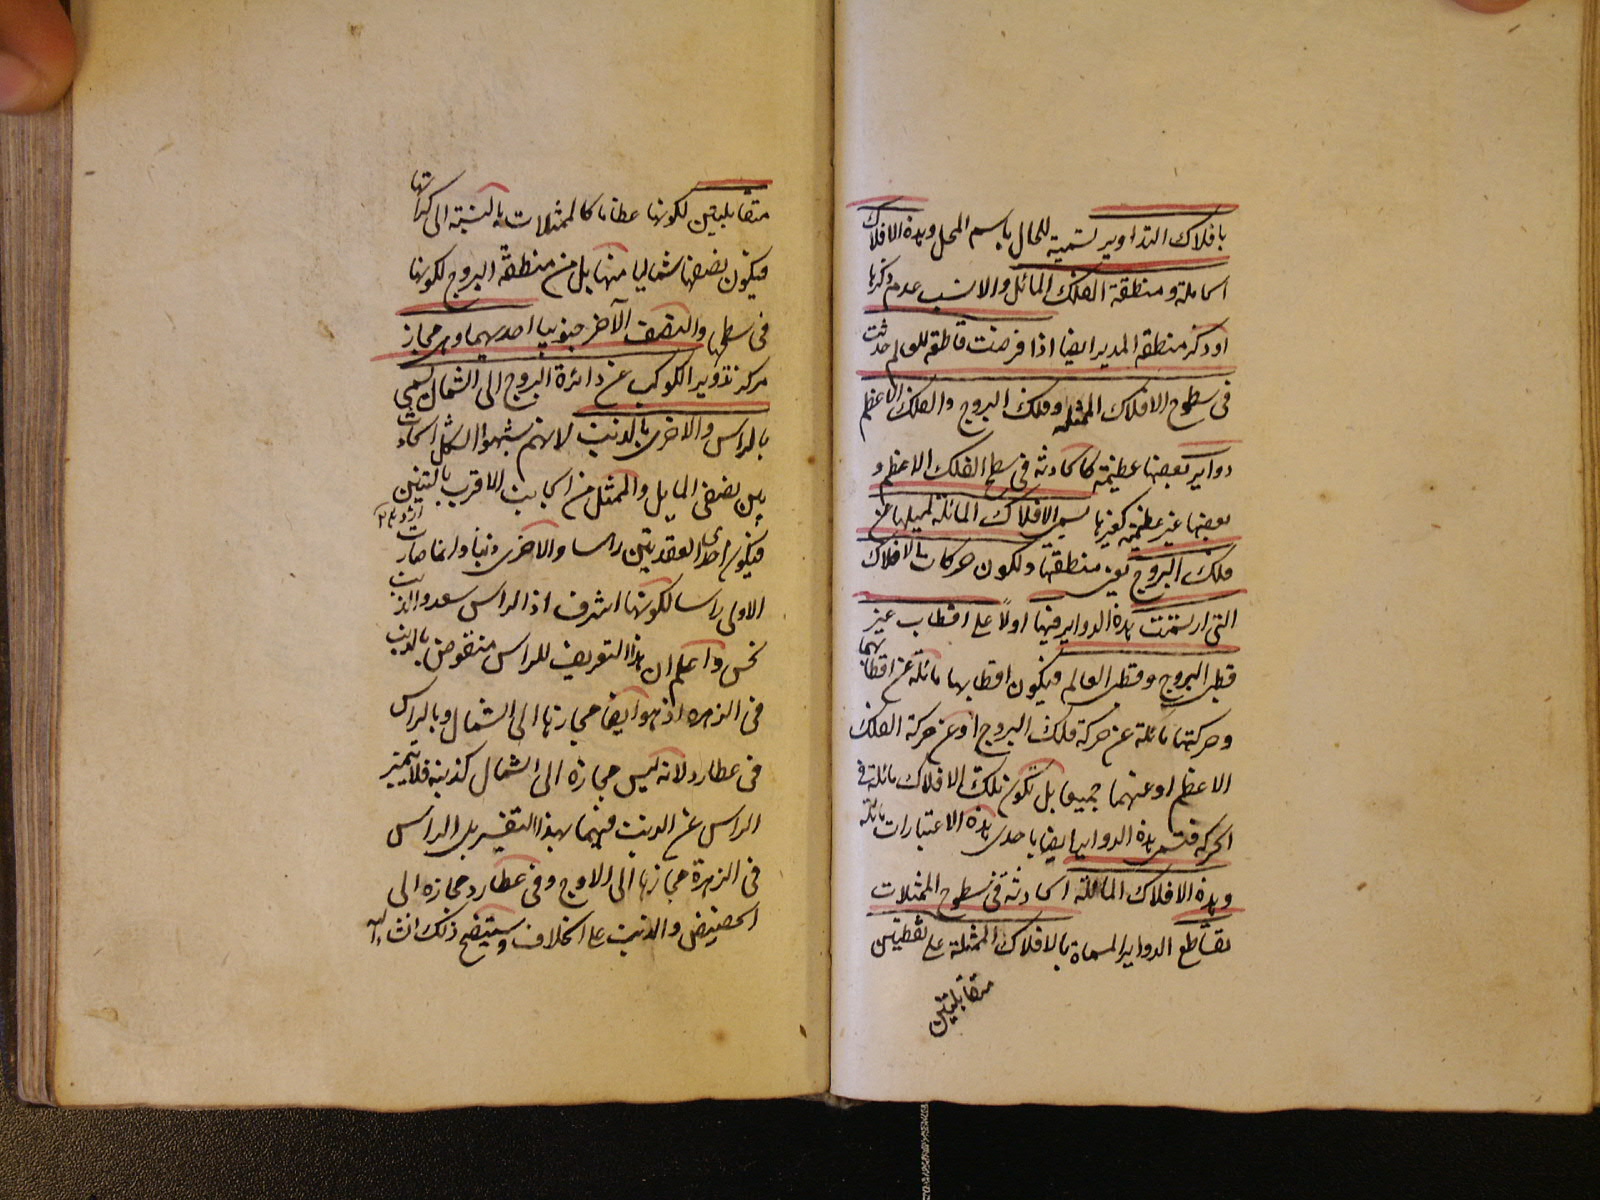 بافلاك التداوير تسمية للحال باسم المحل وهذه الافلاك
الحاملة ومنطقة الفلك المائل والانسب عدم ذكرها
او ذكر منطقة المدير ايضا اذا فرضت قاطعة للعالم حدثت
فى سطوح الافلاك الممثلة وفلك البروج والفلك الاعظم
دواير بعضها عظيمة كالحادثة فى سطح الفلك الاعظم و
بعضها غير عظيمة كغيرها يسمى الافلاك المائلة لميلها عن
فلك البروج يعنى منطقتها ولكون حركات الافلاك
التى ارتسمت هذه الدواير فيها اولا على اقطاب غير
قطبى البروج وقطبى العالم فيكون اقطابها مائلة عن اقطابهما
وحركتها مائلة عن حركة فلك البروج او عن حركة الفلك
الاعظم او عنهما جميعا بل تكون تلك الافلاك مائلة فى
الحركة فتسمى هذه الدواير ايضا باحدى هذه الاعتبارات مائلة
وهذه الافلاك المائلة الحادثة فى سطوح الممثلات
تقاطع الدواير المسماة بالافلاك الممثلة على نقطتين
متقابلتين
متقابلتين لكونها عظاما كالممثلات بالنسبة الى كراتها
فيكون نصفها شماليا منها بل من منطقة البروج لكونها
فى سطحها والنصف الآخر جنوبيا احديهما وهى مجاز
مركز تدوير الكوكب عن دائرة البروج الى الشمال يسمى
بالراس والاخرى بالذنب لانهم شبهوا الشكل الحادث
بين نصفى المايل والممثل من الجانب الاقرب بالتنين
فيكون احدى العقدتين راسا والاخرى ذنبا وانما صارت
الاولى راسا لكونها اشرف اذ الراس سعد والذنب
نحس واعلم ان هذا التعريف للراس منقوض بالذنب
فى الزهرة اذ هو ايضا مجازها الى الشمال وبالراس
فى عطارد لانه ليس مجازه الى الشمال كذنبه فلا يتميز
الراس عن الذنب فيهما بهذا التفسير بل الراس
فى الزهرة مجازها الى الاوج وفى عطارد مجازه الى
الحضيض والذنب على الخلاف وسيتضح ذلك انشاء الله